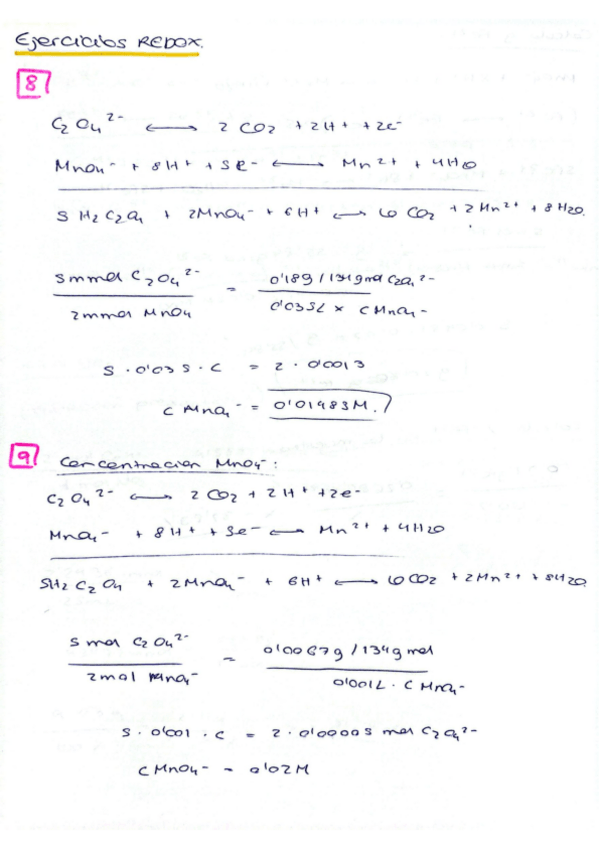 Ejercicios REDOX.
8
C2O4 2- ⟷ 2 CO2 + 2H+ + 2e-
MnO4- + 8H+ + 5e- ⟷ Mn2+ + 4H2O
5 H2C2O4 + 2MnO4- + 6H+ ⟷ 10 CO2 + 2Mn2+ + 8H2O.
5mmol C2O4 2- / 2mmol MnO4 = 0'18g/134gmol C2O4 2- / 0'035L x CMnO4-
5 · 0'035 · C = 2 · 0'0013
C MnO4- = 0'01483M.
9
Concentracion MnO4-:
C2O4 2- ⟷ 2 CO2 + 2H+ + 2e-
MnO4- + 8H+ + 5e- ⟷ Mn2+ + 4H2O
5H2C2O4 + 2MnO4- + 6H+ ⟷ 10CO2 + 2Mn2+ + 8H2O.
5mol C2O4 2- / 2mol MnO4- = 0'0067g/134gmol / 0'001L · CMnO4-
5 · 0'001 · C = 2 · 0'00005 mol C2O4 2-
CMnO4- = 0'02M